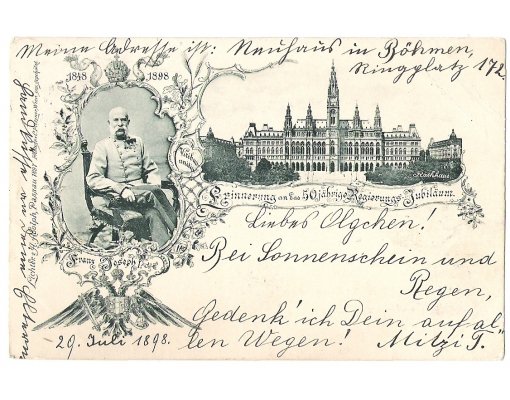 Meine Adresse ist: Neuhaus in Böhmen,
Ringplatz 172.
1848 1898
Rathhaus.
Erinnerung an das 50jährige Regierungs-Jubiläum.
Franz Joseph I.
Liebes Olgchen!
Bei Sonnenschein und
Regen,
Gedenk' ich Dein auf al-
len Wegen! Mitzi T.
29. Juli 1898.